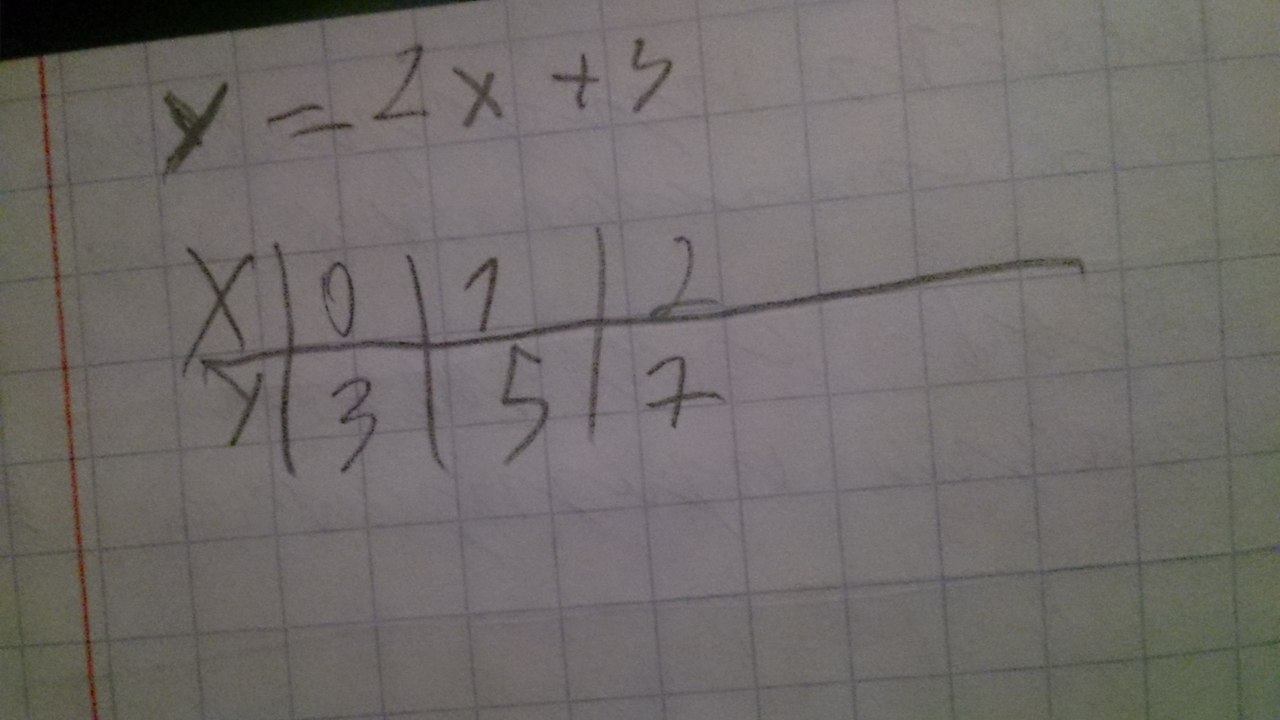 y = 2x + 3
x | 0 | 1 | 2
y | 3 | 5 | 7